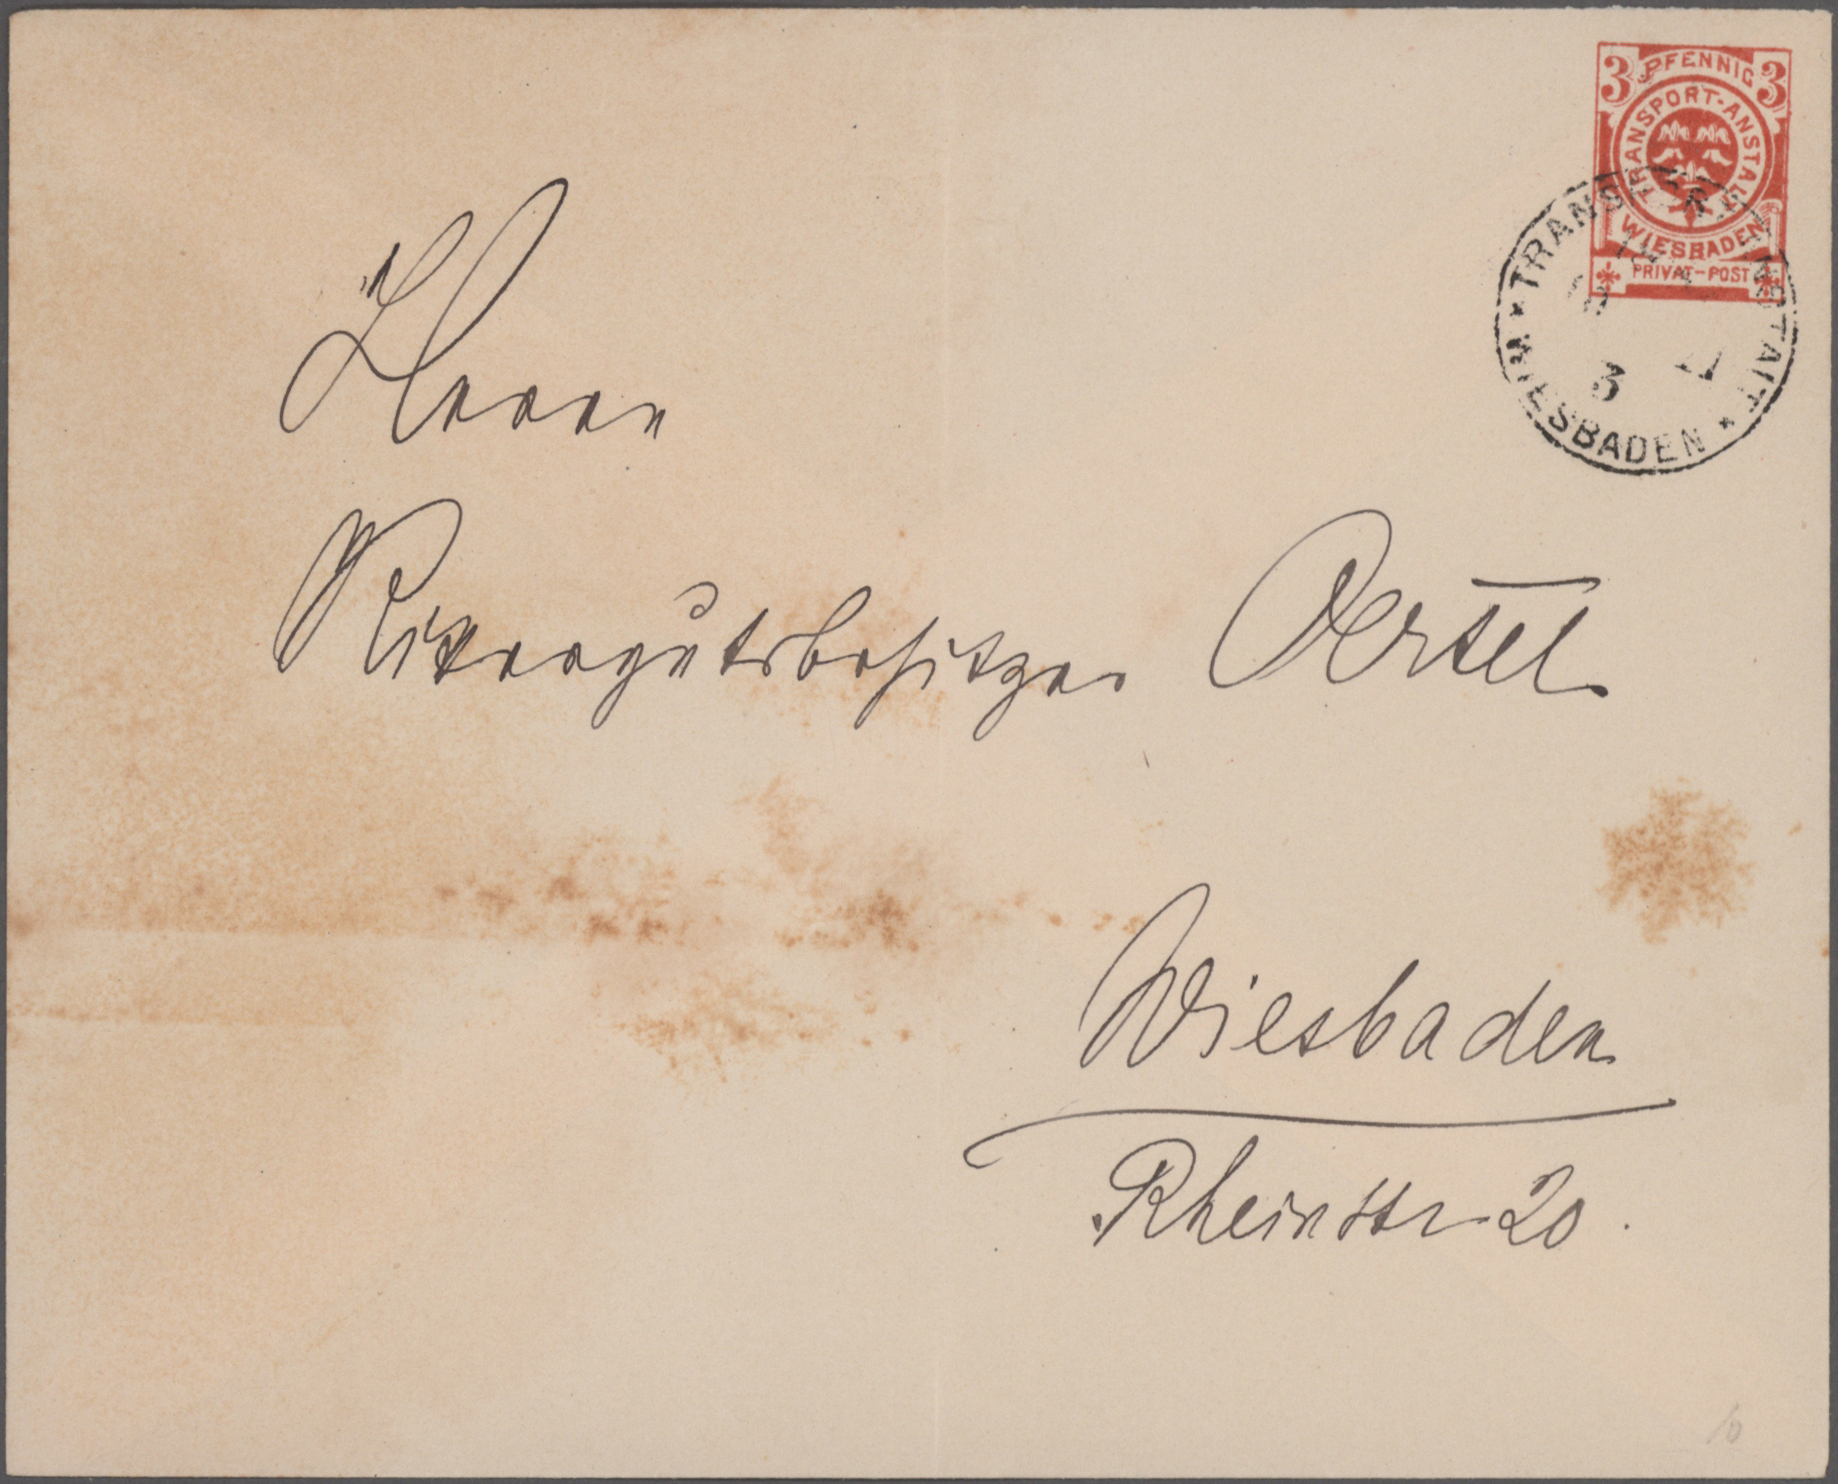 3 PFENNIG 3
TRANSPORT-ANSTALT
WIESBADEN
PRIVAT-POST
* TRANSPORT-ANSTALT *
WIESBADEN
Herrn
Rittergutsbesitzer Oertel.
Wiesbaden
Rheinstr 20.